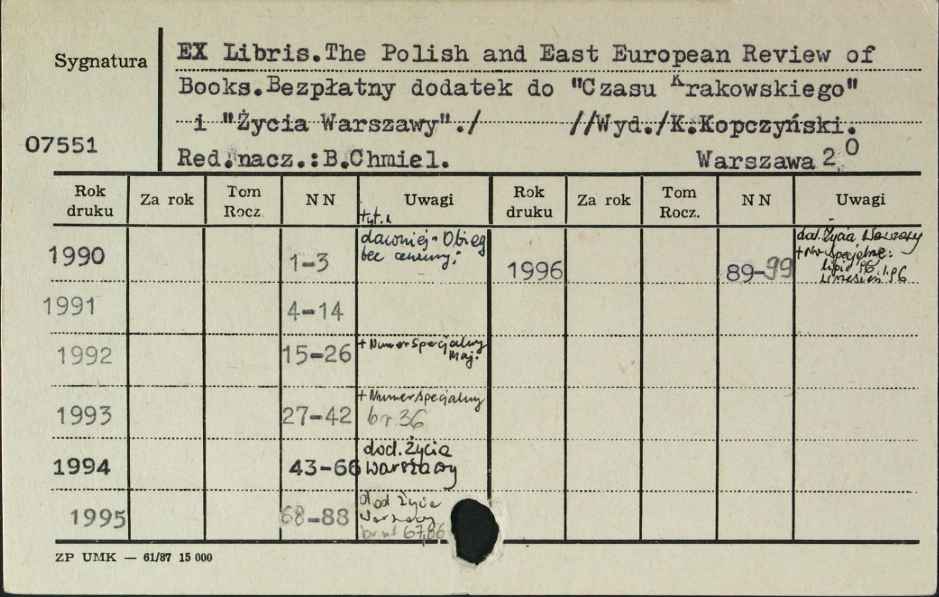 Sygnatura
EX Libris.The Polish and East European Review of
Books.Bezpłatny dodatek do "Czasu Krakowskiego"
i "Życia Warszawy"./ //Wyd./K.Kopczyński.
07551
Red.nacz.:B.Chmiel. Warszawa 2 0
Rok druku Za rok Tom Rocz. NN Uwagi Rok druku Za rok Tom Rocz. NN Uwagi
1990 1-3 tyt. dawniej "Obieg bez cenzury"
1996 89-99 dod. Życia Warszawy
+Nr specjalne:
lipiec 96
wrzesień 96
1991 4-14
1992 15-26 +Numer specjalny
Maj.
1993 27-42 +Numer specjalny
br 36
1994 43-66 dod. Życia
Warszawy
1995 68-88 dod Życia
Warszawy
br nr 67,86
ZP UMK — 61/87 15 000